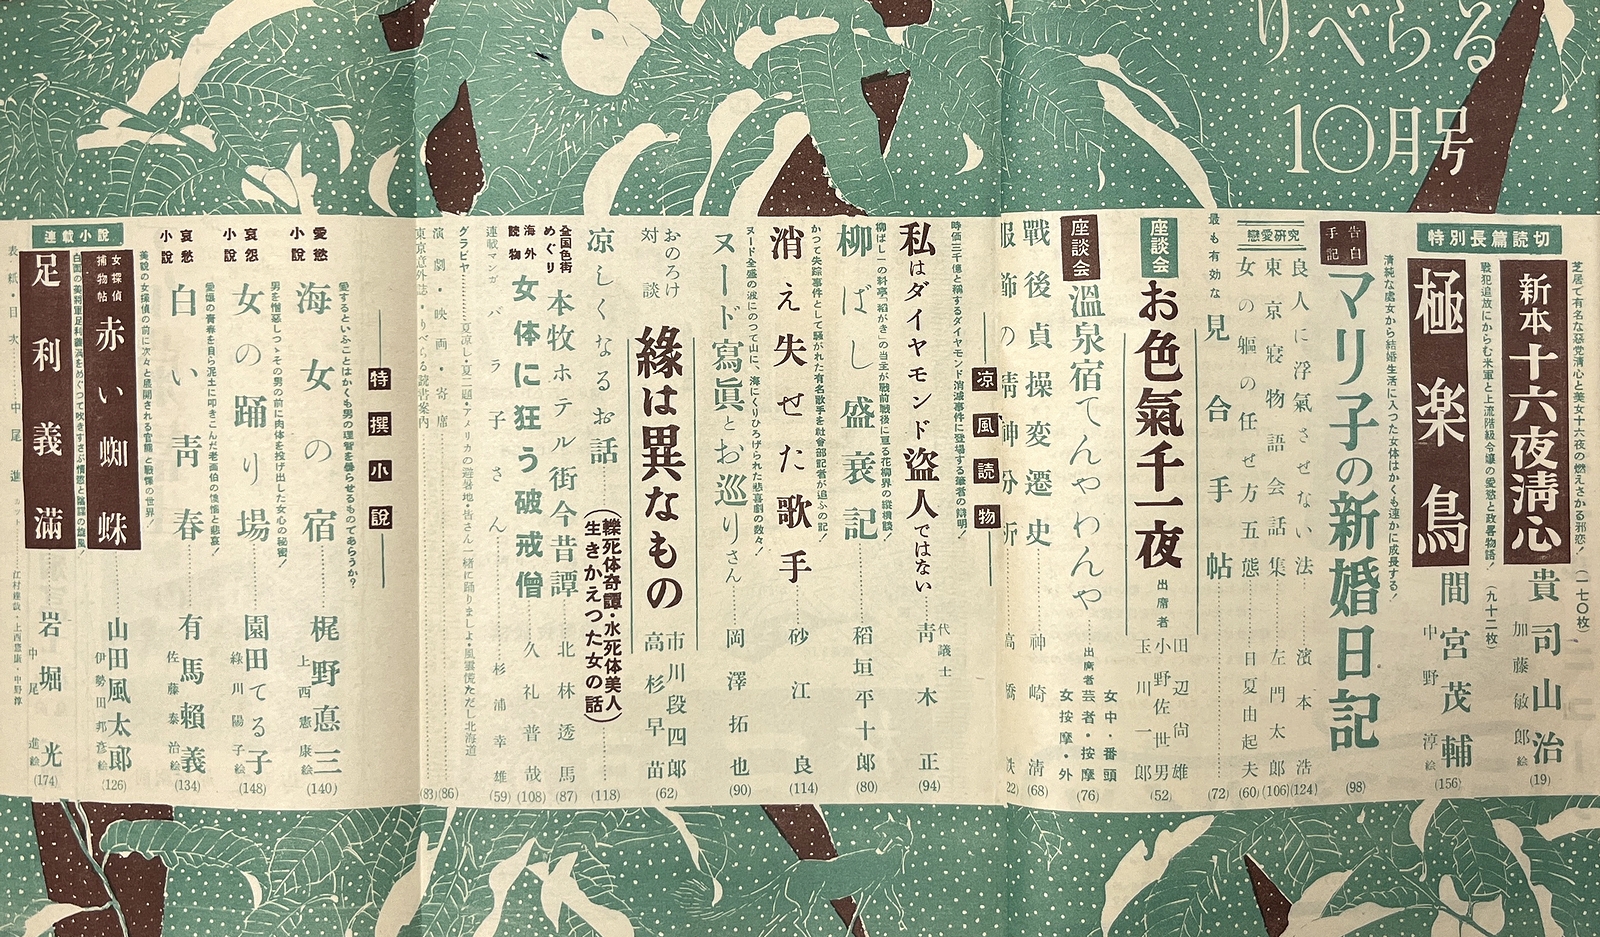 りべらる
10月号
特別長篇読切
芝居で有名な惡党清心と美女十六夜の燃えさかる邪恋!
(一七〇枚)
新本 十六夜清心
貴司山治
加藤敏郎絵
(19)
戰犯追放にからむ米軍と上流階級令嬢の愛慾と政畧物語!
(九十二枚)
極楽鳥
間宮茂輔
中野淳絵
(156)
清純な處女から結婚生活に入つた女体はかくも速かに成長する!
告白手記
マリ子の新婚日記
(98)
戀愛研究
良人に浮氣させない法
濱本浩
(124)
東京寢物語会話集
左門太郎
(106)
女の軀の任せ方五態
日夏由起夫
(60)
最も有効な見合手帖
(72)
座談会
お色氣千一夜
出席者
田辺尚雄
小野佐世男
玉川一郎
(52)
座談会
温泉宿てんやわんや
出席者
女中・番頭
芸者・按摩
女按摩・外
(76)
戰後貞操変遷史
神崎清
(68)
服飾の精神分析
高橋鉄
22)
凉風読物
時価三千億と称するダイヤモンド消滅事件に登場する筆者の辯明!
私はダイヤモンド盗人ではない
代議士
靑木正
(94)
柳ばし一の料亭「稻がき」の当主が戰前戰後に亘る花柳界の縦橫談!
柳ばし盛衰記
稻垣平十郎
(80)
かつて失踪事件として騒がれた有名歌手を社會部記者が追ふの記!
消え失せた歌手
砂江良
(114)
ヌード全盛の波にのつて山に、海にくりひろげられた悲喜劇の数々!
ヌード寫眞とお巡りさん
岡澤拓也
(90)
おのろけ対談
緣は異なもの
市川段四郎
高杉早苗
(62)
凉しくなるお話
(轢死体奇譚・水死体美人
生きかえつた女の話)
(118)
全国色街めぐり
本牧ホテル街今昔譚
北林透馬
(87)
海外読物
女体に狂う破戒僧
久礼普哉
(108)
連載マンガ
バラ子さん
杉浦幸雄
(59)
グラビヤ
夏凉し・夏二題・アメリカの避暑地・皆さん一緒に踊りましよ・風雲慌ただし北海道
演劇・映画・寄席
(86)
東京意外誌・りべらる読書案内
(83)
特撰小說
愛するといふことはかくも男の理智を曇らせるものであらうか?
愛慾小說
海女の宿
梶野悳三
上西憲康絵
(140)
男を憎惡しつゝその男の前に肉体を投げ出した女心の秘密!
哀怨小說
女の踊り場
園田てる子
綠川陽子絵
(148)
愛孃の青春を自ら泥土に叩きこんだ老画伯の懊惱と悲哀!
哀愁小說
白い靑春
有馬賴義
佐藤泰治絵
(134)
連載小說
美貌の女探偵の前に次々と展開される官能と戰慄の世界!
女探偵捕物帖
赤い蜘蛛
山田風太郎
伊勢田邦彦絵
(126)
白面の美将軍足利義満をめぐつて吹きすさぶ情慾と陰謀の旋風!
足利義滿
岩堀光
中尾進絵
(174)
表紙・目次
中尾進
カット
江村達哉・上西憲康・中野淳